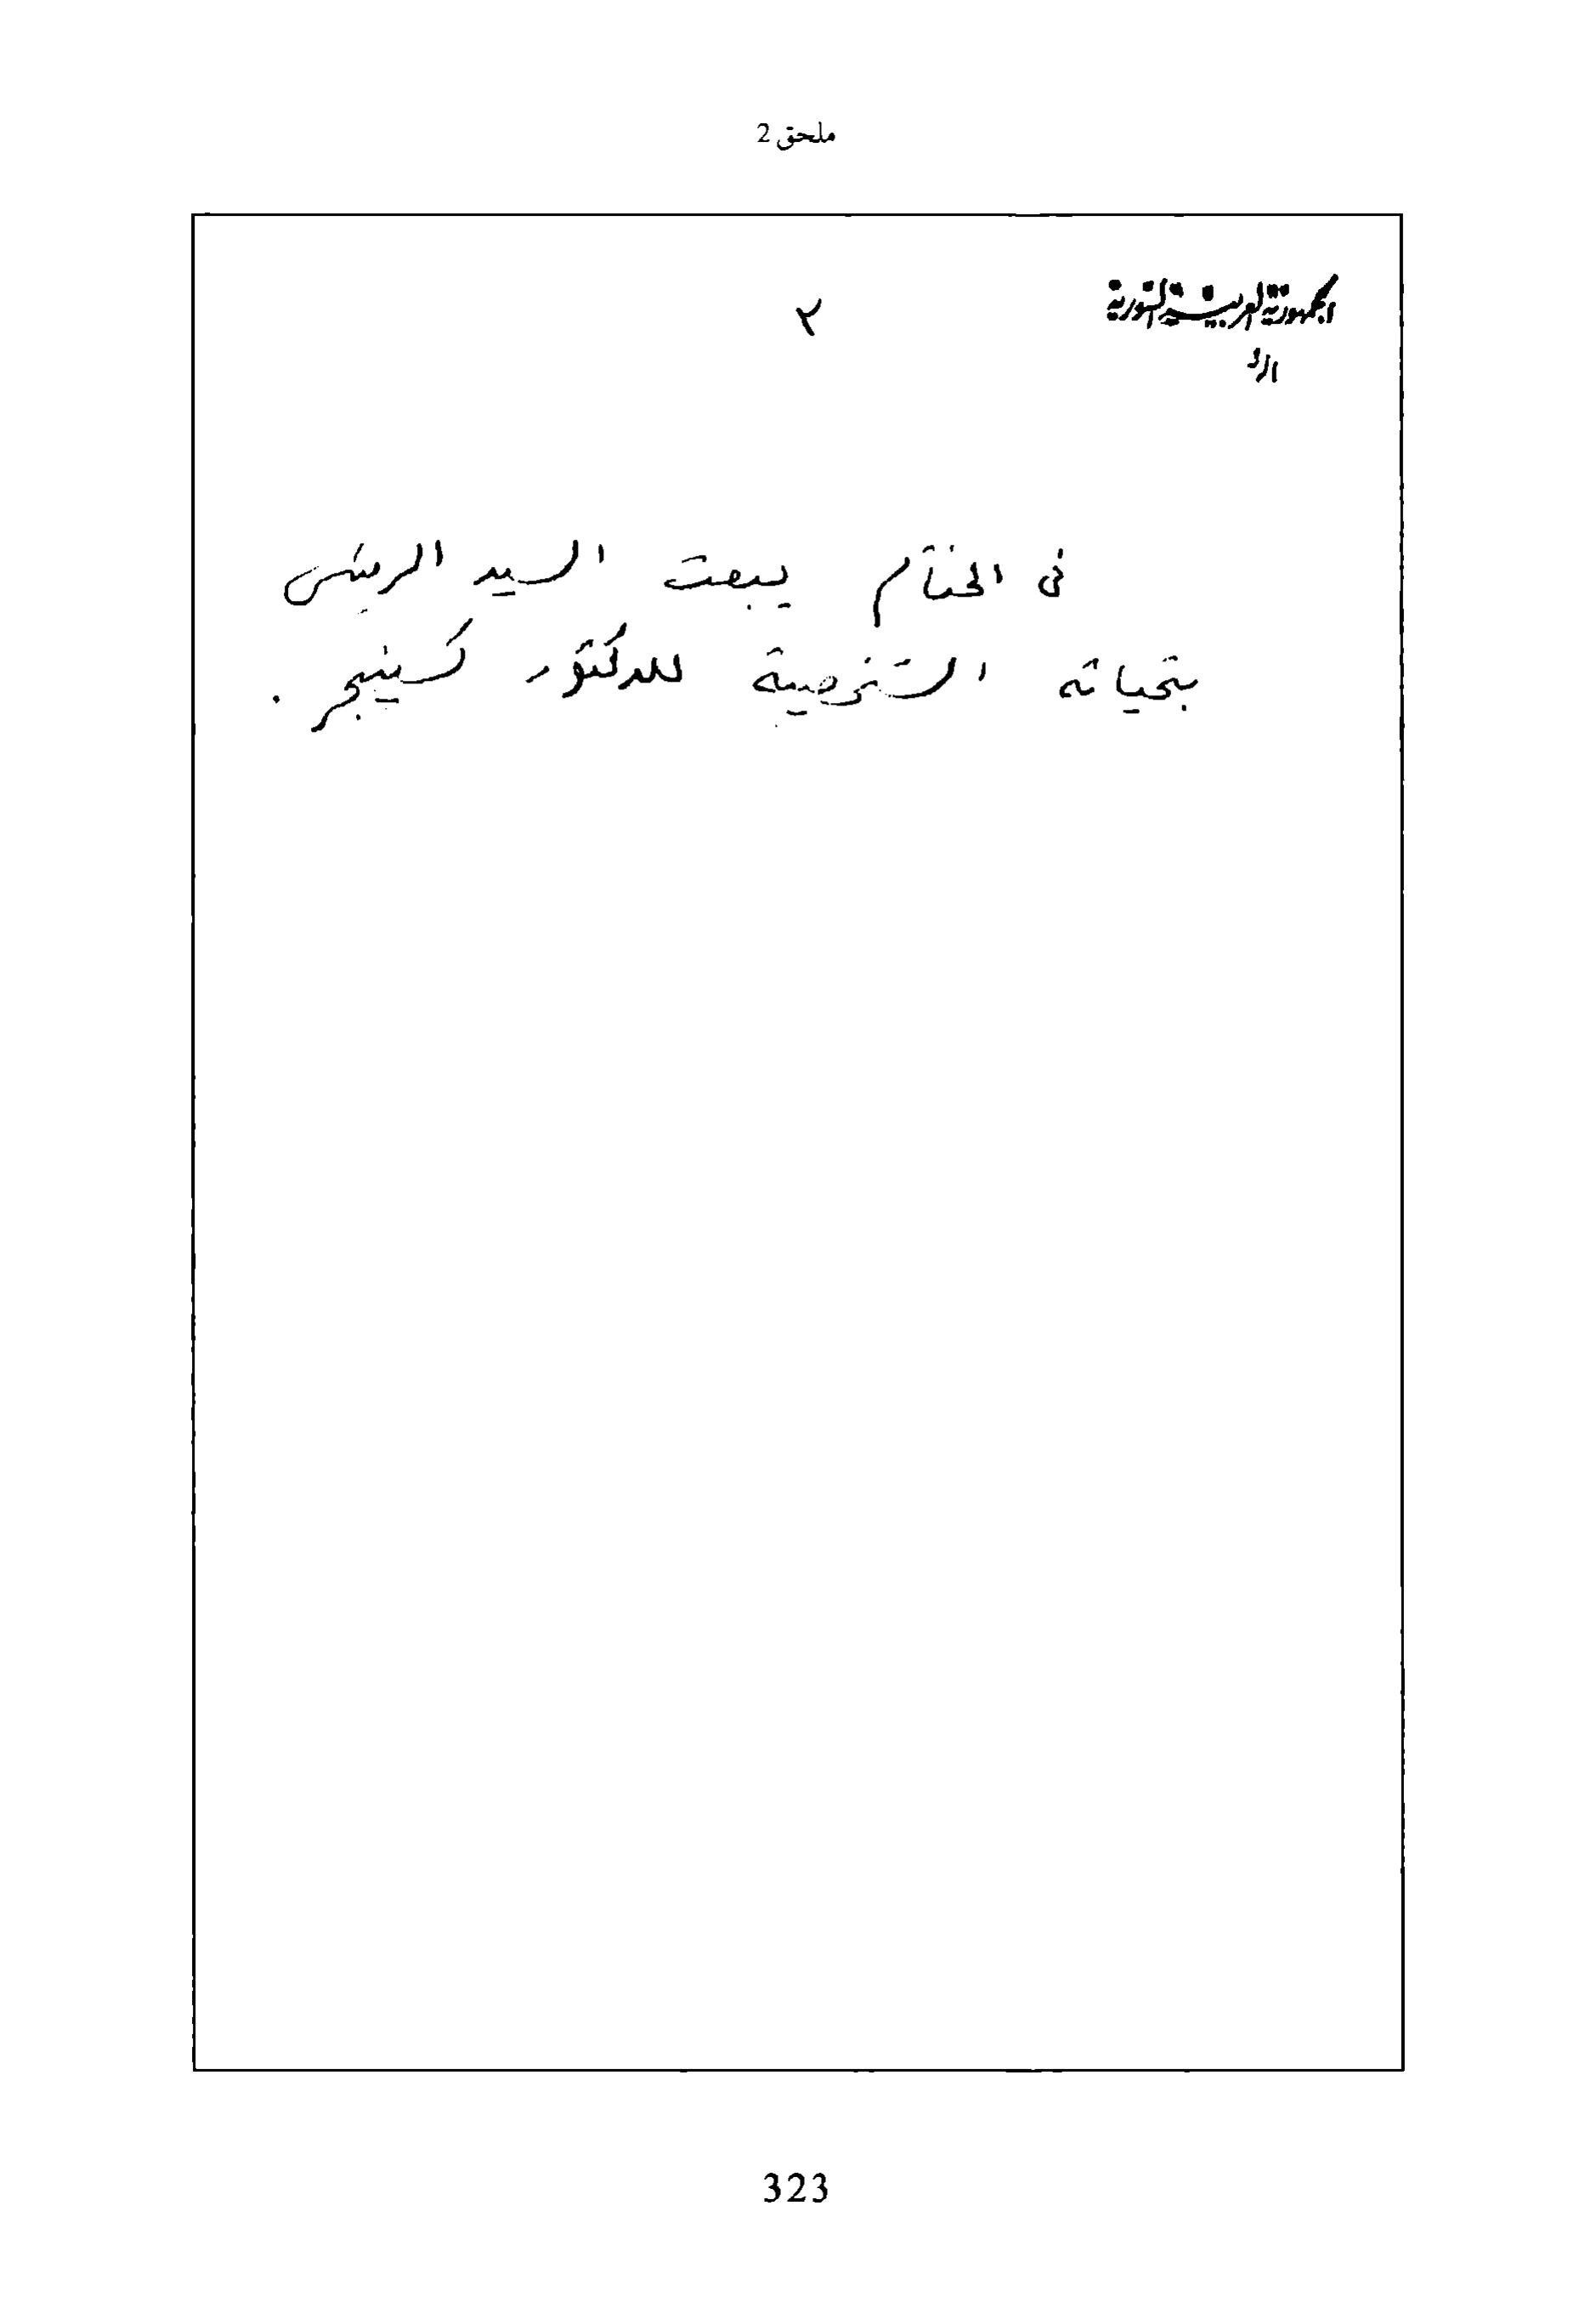 ملحق 2
الجمهورية العربية السورية
٢
في الختام يبعث السيد الرئيس
بتحياته الشخصية للدكتور كسينجر .
323